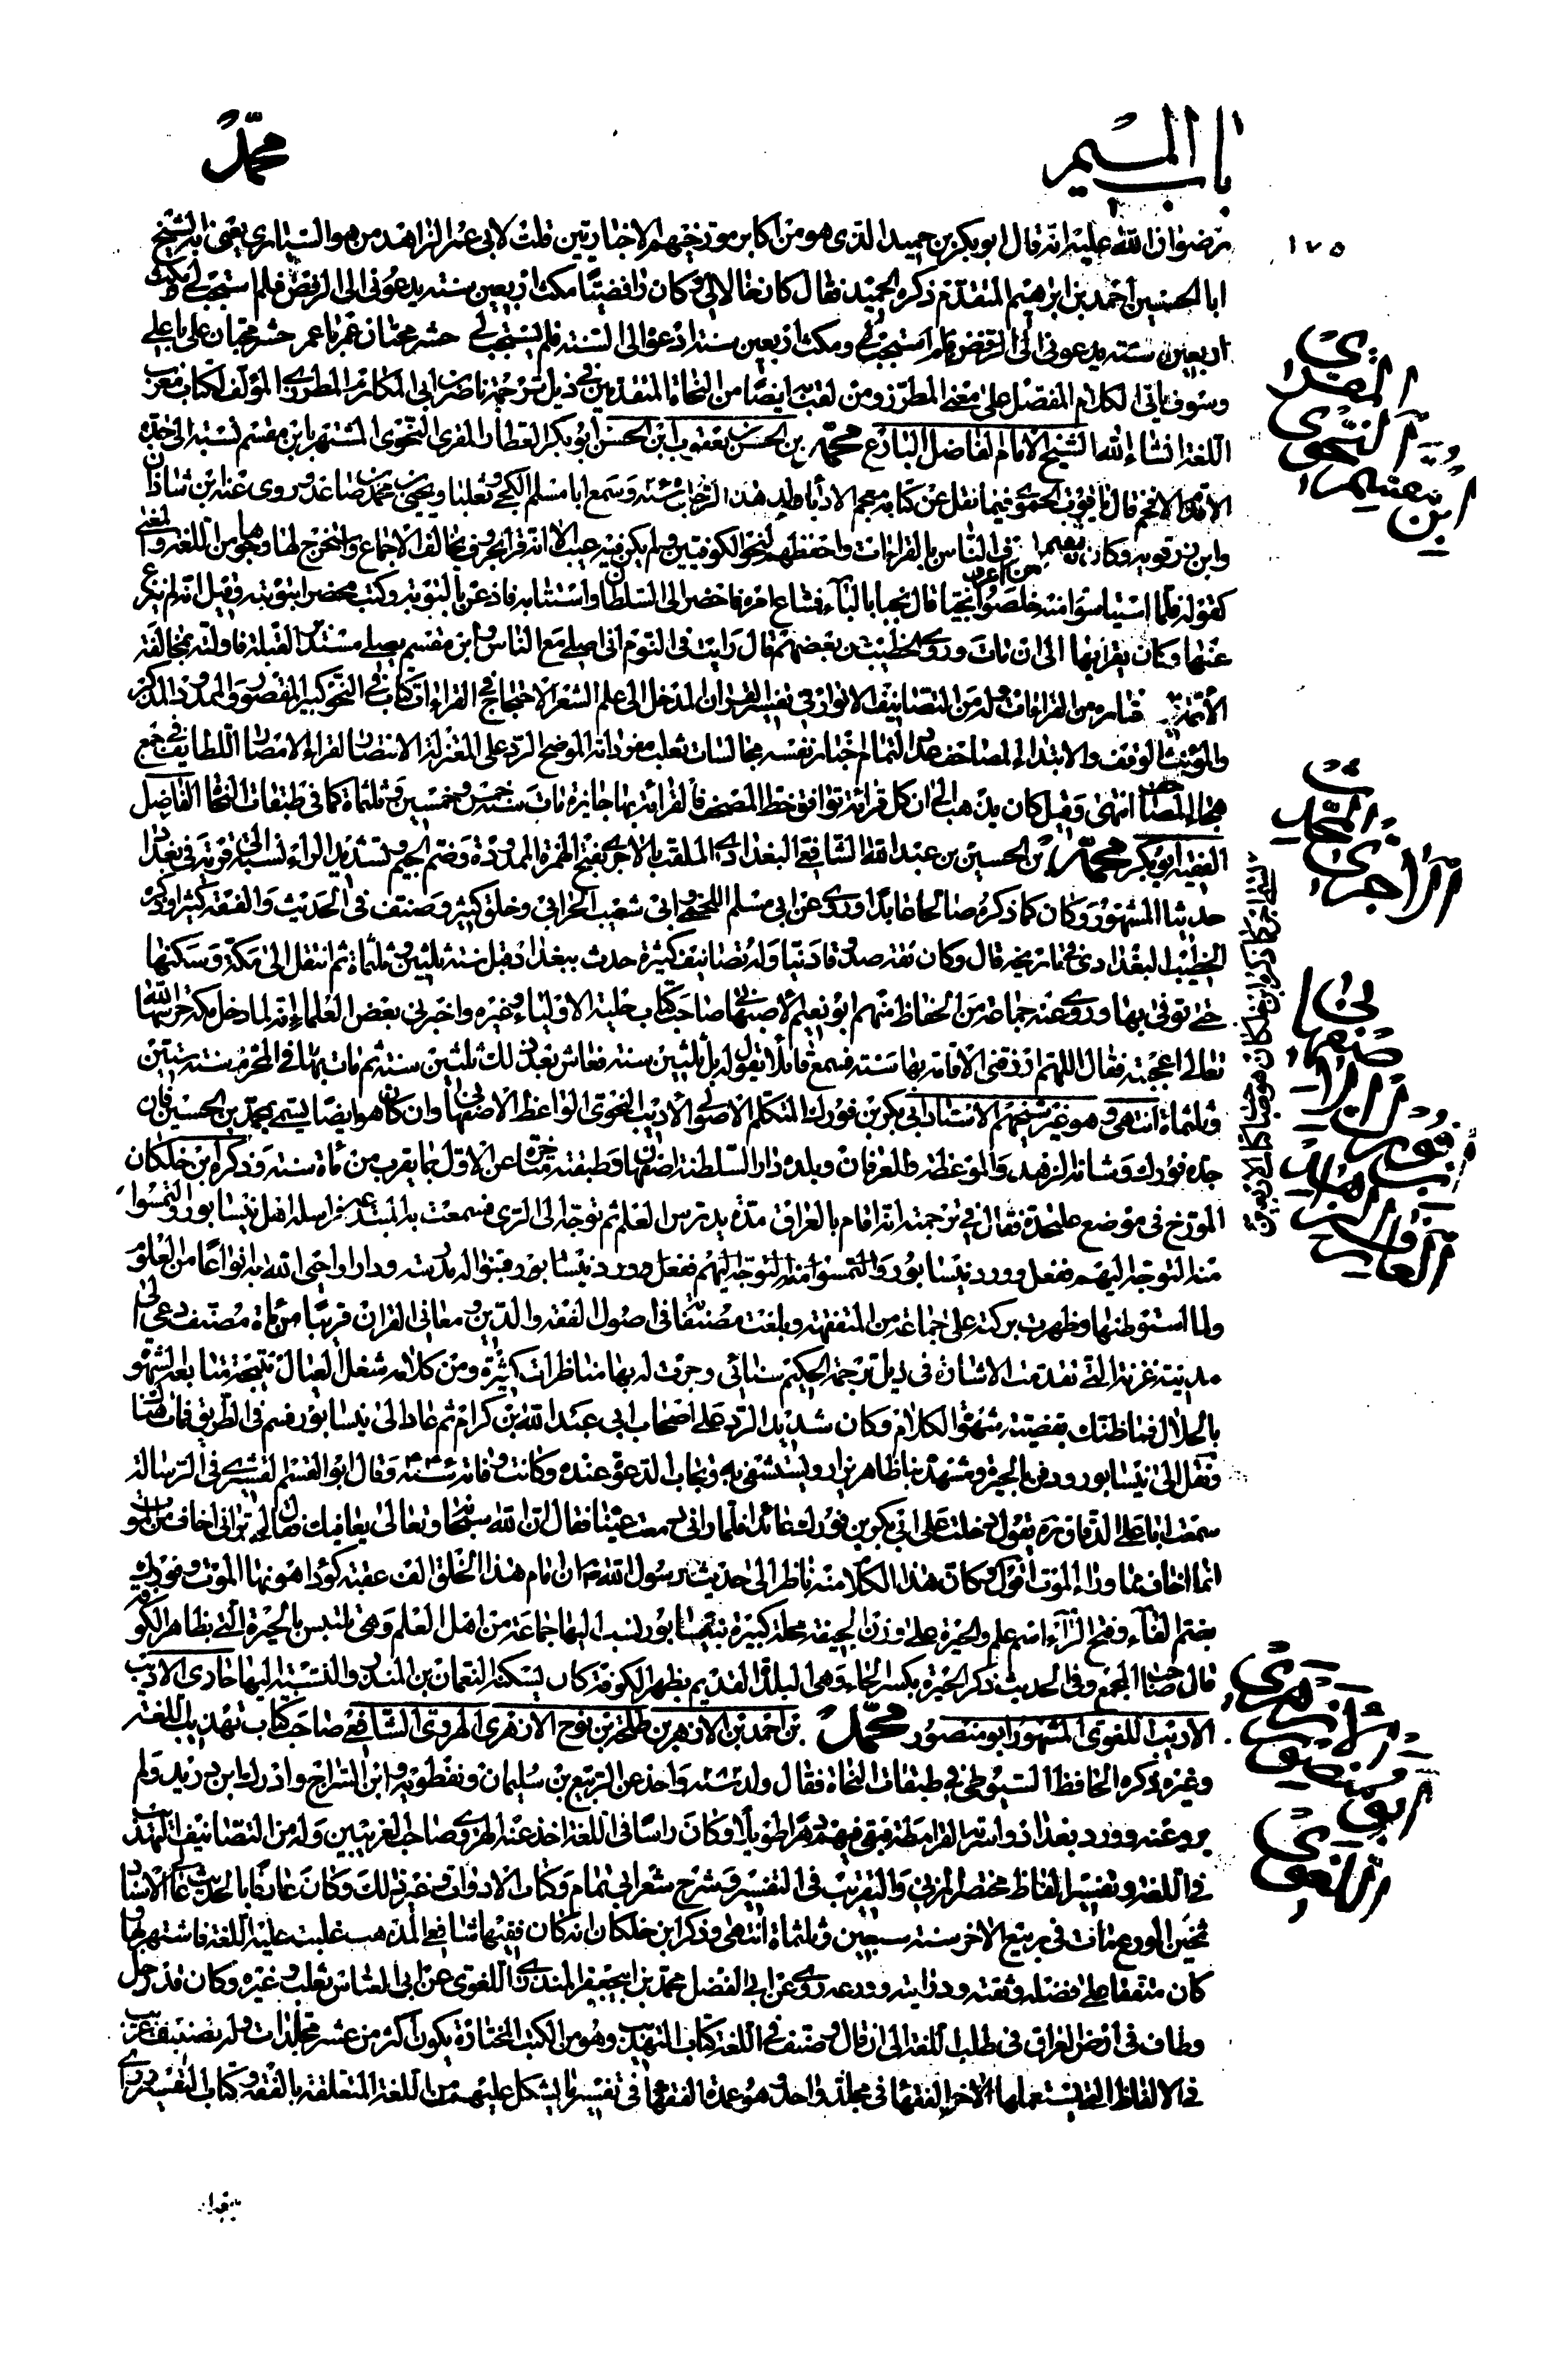 باب الميم
محمد
١٧٥
رضوان الله عليه انه قال ابو بكر بن حميد الذى هو من اكابر مورخيهم الاخباريين قلت لابى عمر الزاهد من هو السيارى يعنى به الشيخ
ابا الحسين احمد بن ابرهيم المتقدم ذكره الحميد فقال كان خالا لى وكان رافضيا مكث اربعين سنة يدعونى الى الرفض فلم استجب له ومكثت
اربعين سنة ادعوه الى السنة فلم يستجب لى
وسوف ياتى الكلام المفصل على معنى المطرز ومن لقب به ايضا من النحاة المتقدمين فى ذيل ترجمة ناصر بن ابى المكارم المطرزى المؤلف لكتاب معرب
اللغة انشاء الله الشيخ الامام الفاضل البارع محمد بن الحسن بن يعقوب ابن الحسن ابو بكر العطار المقرى النحوى المشتهر بابن مقسم نسبته الى جده
قال ياقوت الحموى فيما نقل عن كتابه معجم الادباء ولد هذا الرجل سنة وسمع ابا مسلم الكجى وثعلبا ويحيى بن محمد بن صاعد وروى عنه ابن شاذان
وابن رزقويه وكان من اعرف الناس بالقراءات واحفظهم لنحو الكوفيين ولم يكن فيه عيب الا انه قرا بحروف تخالف الاجماع واستخرج لها وجوها من اللغة والمعنى
كقوله فلما استياسوا منه خلصوا نجيا قال نجبا بالباء فشاع امره فاحضر الى السلطان واستتابه فاذعن بالتوبة وكتب محضر بتوبته وقيل انه لم ينزع
عنها وكان يقرا بها الى ان مات وروى الخطيب عن بعضهم قال رايت فى النوم انى اصلى مع الناس وابن مقسم يصلى مستدبر القبلة فاولته بمخالفة
الائمة فيما اختاره من القراءات وله من التصانيف الانوار فى تفسير القران المدخل الى علم الشعر الاحتجاج فى القراءات كتاب فى النحو كبير المقصور والممدود المذكر
والمؤنث الوقف والابتداء المصاحف عدد التمام اخبار نفسه مجالسات ثعلب مفرداته الموضح الرد على المعتزلة الانتصار لقراء الامصار اللطايف فى جمع
هجاء المصاحف انتهى وقيل كان يذهب الى ان كل قراءة توافق خط المصحف فالقراءة بها جايزة مات سنة خمس وخمسين وثلثماة كما فى طبقات النحاة الفاضل
الفقيه ابو بكر محمد بن الحسين بن عبد الله الشافعى البغدادى الملقب بالاجرى بفتح الهمزة الممدودة وضم الجيم وتشديد الراء نسبة الى قرية فى بغداد
المشهور وكان كما ذكره صالحا عابدا وروى عن ابى مسلم الكجى وابى شعيب الحرانى وخلق كثير وصنف فى الحديث والفقه كثيرا وذكره
الخطيب البغدادى فى تاريخه قال وكان ثقة صدوقا دينا وله تصانيف كثيرة حدث ببغداد قبل سنة ثلثين وثلثماة ثم انتقل الى مكة وسكنها
حتى توفى بها وروى عنه جماعة من الحفاظ منهم ابو نعيم الاصبهانى صاحب كتاب حلية الاولياء وغيره واخبرنى بعض العلماء انه لما دخل مكة حرسها الله
تعالى اعجبته فقال اللهم ارزقنى الاقامة بها سنة فسمع قائلا يقول له بل ثلثين سنة فعاش بعد ذلك ثلثين سنة ثم مات بها فى المحرم سنة ستين
وثلثماة انتهى وهو غير شيخهم الاستاد ابى بكر بن فورك المتكلم الاصولى الاديب النحوى الواعظ الاصفهانى وان كان هو ايضا يسمى بمحمد بن الحسين فان
جده فورك وشانه الزهد والموعظة والعرفان وبلده دار السلطنة اصفهان وطبقته متاخرة عن الاول بما يقرب من ماة سنة وذكره ابن خلكان
المورخ فى موضع عليحدة فقال فى ترجمته انه اقام بالعراق مدة يدرس العلم ثم توجه الى الرى فسمعت به المبتدعة فراسله اهل نيسابور والتمسوا
منه التوجه اليهم ففعل وورد نيسابور والتمسوا منه التوجه اليهم ففعل وورد نيسابور فبنوا له مدرسة ودارا واحيى الله به انواعا من العلوم
ولما استوطنها وظهرت بركته على جماعة من المتفقهة وبلغت مصنفاته فى اصول الفقه والدين ومعانى القران قريبا من ماة مصنف دعى الى
مدينة غزنة التى تقدمت الاشارة فى ذيل ترجمة الحكيم سنائى وجرت له بها مناظرات كثيرة ومن كلامه شغل العيال نتيجة متابعة الشهوة
بالحلال فما ظنك بقضية شهوة الكلام وكان شديد الرد على اصحاب ابى عبد الله بن كرام ثم عاد الى نيسابور فسم فى الطريق فمات هناك
ونقل الى نيسابور ودفن بالحيرة ومشهده بها ظاهر يزار ويستسقى به وتجاب الدعوة عنده وكانت وفاته سنة وقال ابو القسم القشيرى فى الرسالة
سمعت ابا على الدقاق يقول دخلت على ابى بكر بن فورك عائدا فلما رانى دمعت عيناه فقلت ان الله سبحانه وتعالى يعافيك فقال لى ترانى اخاف من الموت
انما اخاف مما وراء الموت اقول وكان هذا الكلام منه ناظر الى حديث رسول الله ان امام هذا الخلق الف عقبة كؤد اهونها الموت وفورك
بضم الفاء وفتح الراء اسم علم والحيرة على وزن الجيفة محلة كبيرة بنيسابور نسب اليها جماعة من اهل العلم وهى تلتبس بالحيرة التى بظاهر الكوفة
قال صاحب المجمع وفى الحديث ذكر الحيرة بكسر الحاء وهى البلد القديم بظهر الكوفة كان يسكنه النعمان بن المنذر والنسبة اليها حارى الاديب
الاريب اللغوى المشهور ابو منصور محمد بن احمد بن الازهر بن طلحة بن نوح الازهرى الهروى الشافعى صاحب كتاب تهذيب اللغة
وغيره ذكره الحافظ السيوطى فى طبقات النحاة فقال ولد سنة واخذ عن الربيع بن سليمان ونفطويه وابن السراج وادرك ابن دريد ولم
يرو عنه وورد بغداد واسرته القرامطة فبقى فيهم دهرا طويلا وكان راسا فى اللغة اخذ عنه الهروى صاحب الغريبين وله من التصانيف التهذيب
فى اللغة وتفسير الفاظ مختصر المزنى والتقريب فى التفسير وشرح شعر ابى تمام وكتاب الادوات وغير ذلك وكان عارفا بالحديث عالى الاسناد
ثخين الورع مات فى ربيع الاخر سنة سبعين وثلثماة انتهى وذكر ابن خلكان انه كان فقيها شافعى المذهب غلبت عليه اللغة فاشتهر بها و
كان متفقا على فضله وثقته ودرايته وورعه روى عن ابى الفضل محمد بن ابى جعفر المنذرى اللغوى عن ابى العباس ثعلب وغيره وكان قد رحل
وطاف فى ارض العراق فى طلب اللغة الى ان قال وصنف فى اللغة كتاب التهذيب وهو من الكتب المختارة يكون اكثر من عشر مجلدات وله تصنيف غريب
فى الالفاظ التى يستعملها الفقهاء فى مجلد واحد وهو عمدة الفقهاء فى تفسير ما يشكل عليهم من اللغة المتعلقة بالفقه وكتاب التفسير وراى
المقرى
النحوى
ابن مقسم
المحدث
الاجرى
الاصفهانى
ابن فورك
الزاهد
العارف
الازهرى
ابو منصور
اللغوى